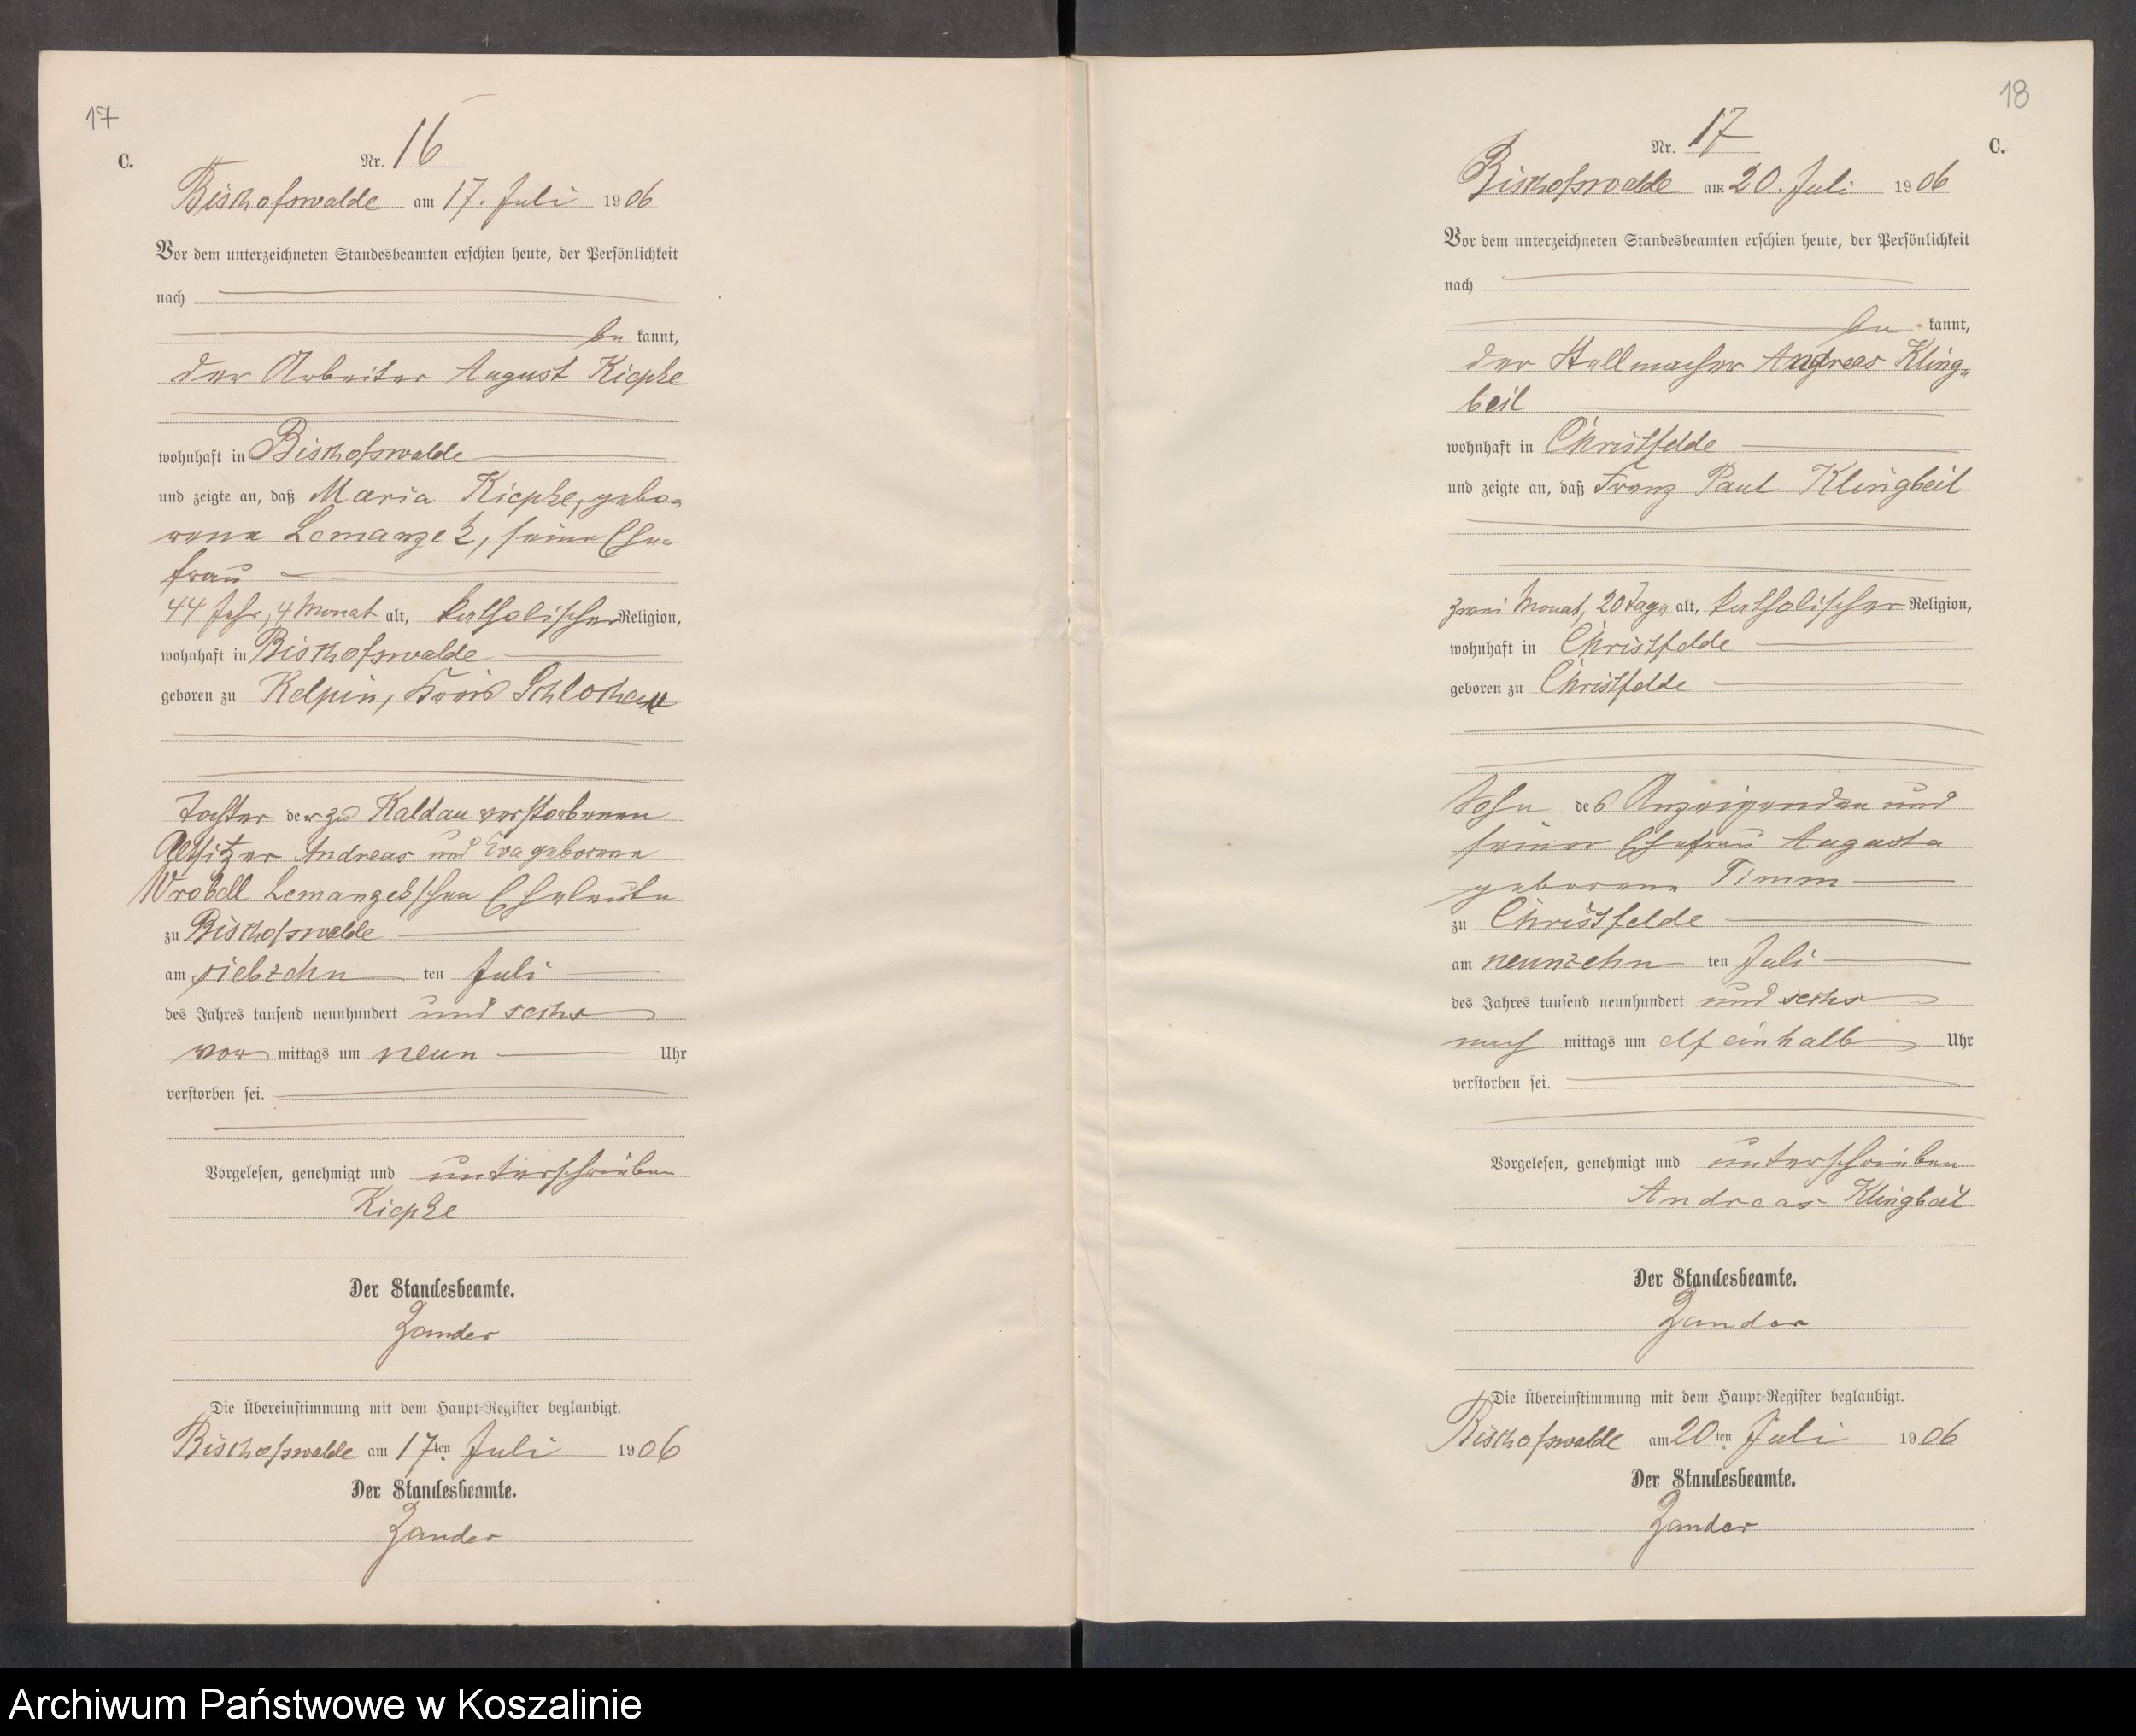 17
C.
Nr. 16
Bischofswalde am 17. Juli 1906
Vor dem unterzeichneten Standesbeamten erschien heute, der Persönlichkeit
nach
be kannt,
der Arbeiter August Kiepke
wohnhaft in Bischofswalde
und zeigte an, daß Maria Kiepke, gebo-
rene Lemanzek, seine Ehe-
frau
44 Jahr, 4 Monat alt, katholischer Religion,
wohnhaft in Bischofswalde
geboren zu Kelpin, Kreis Schlochau
Tochter der zu Kaldau verstorbenen
Altsitzer Andreas und Eva geborene
Wrobell Lemanzek'schen Eheleute
zu Bischofswalde
am siebzehn ten Juli
des Jahres tausend neunhundert und sechs
vor mittags um neun Uhr
verstorben sei.
Vorgelesen, genehmigt und unterschrieben
Kiepke
Der Standesbeamte.
Zander
Die Übereinstimmung mit dem Haupt-Register beglaubigt.
Bischofswalde am 17ten Juli 1906
Der Standesbeamte.
Zander
18
C.
Nr. 17
Bischofswalde am 20. Juli 1906
Vor dem unterzeichneten Standesbeamten erschien heute, der Persönlichkeit
nach
be kannt,
der Stellmacher Andreas Kling-
beil
wohnhaft in Christfelde
und zeigte an, daß Franz Paul Klingbeil
zwei Monat, 20 Tage alt, katholischer Religion,
wohnhaft in Christfelde
geboren zu Christfelde
Sohn des Anzeigenden und
seiner Ehefrau Augusta
geborene Timm
zu Christfelde
am neunzehn ten Juli
des Jahres tausend neunhundert und sechs
nach mittags um elf einhalb Uhr
verstorben sei.
Vorgelesen, genehmigt und unterschrieben
Andreas Klingbeil
Der Standesbeamte.
Zander
Die Übereinstimmung mit dem Haupt-Register beglaubigt.
Bischofswalde am 20ten Juli 1906
Der Standesbeamte.
Zander
Archiwum Państwowe w Koszalinie